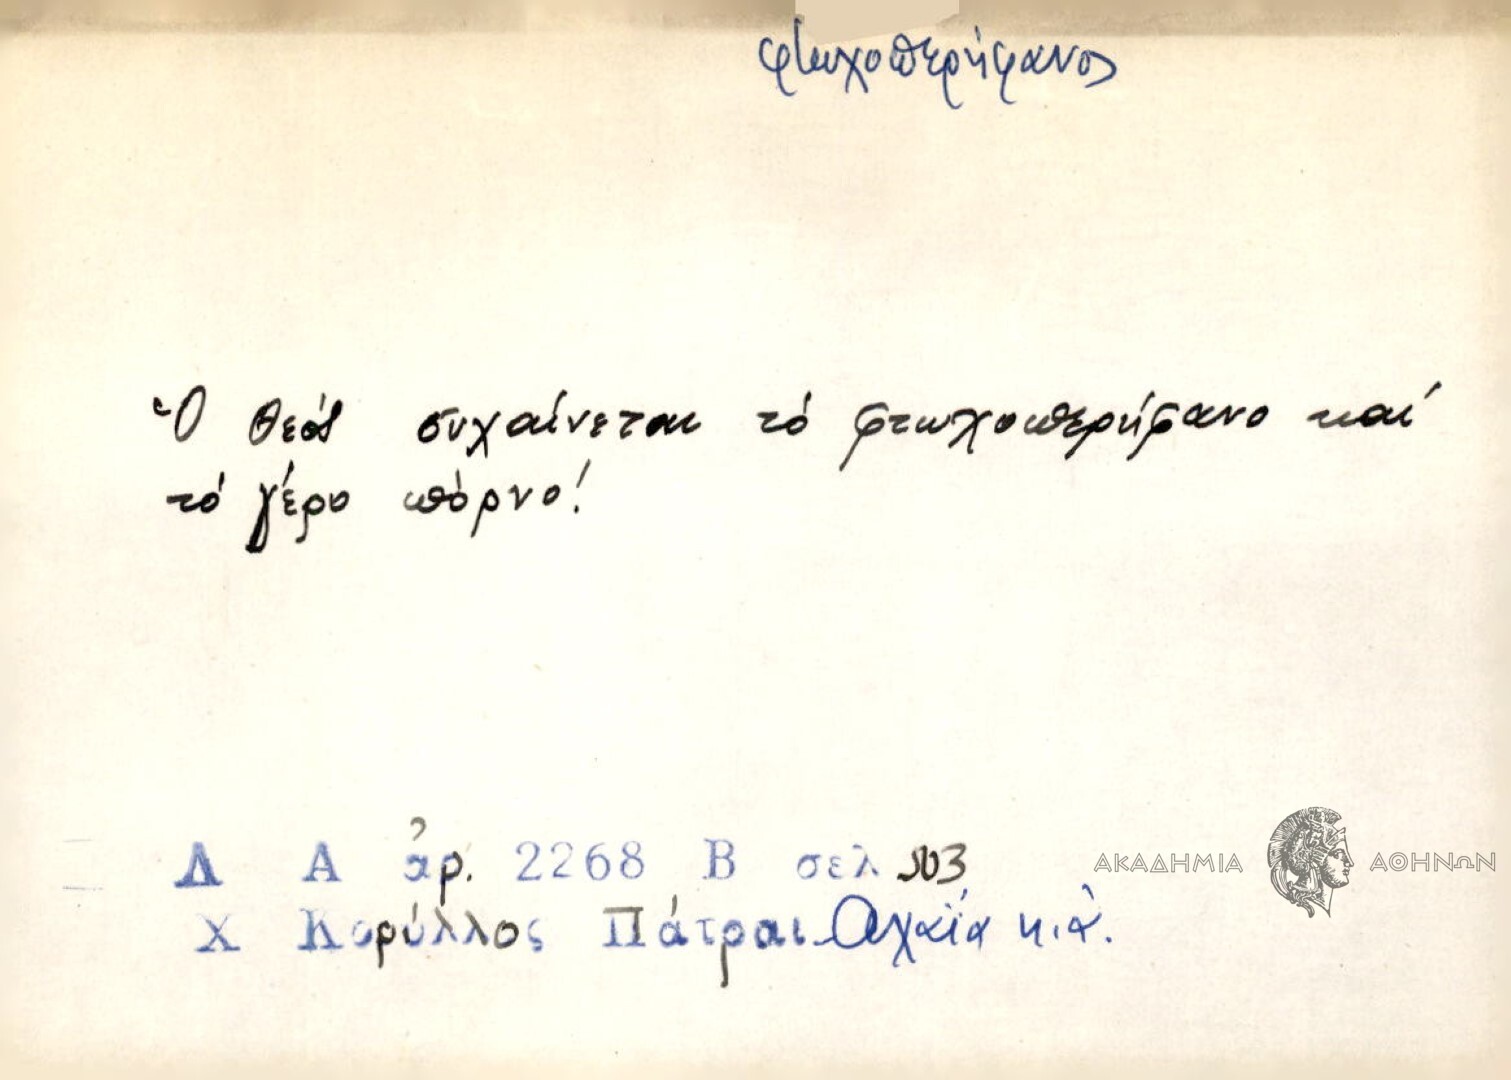 φτωχοπερήφανος
Ὁ θεός συχαίνεται τό φτωχοπερήφανο καί
τό γέρο πόρνο!
Λ Α ἀρ. 2268 Β σελ 103
Χ Κορύλλος Πάτραι Ἀχαΐα κ.ἀ.
ΑΚΑΔΗΜΙΑ ΑΘΗΝΩΝ